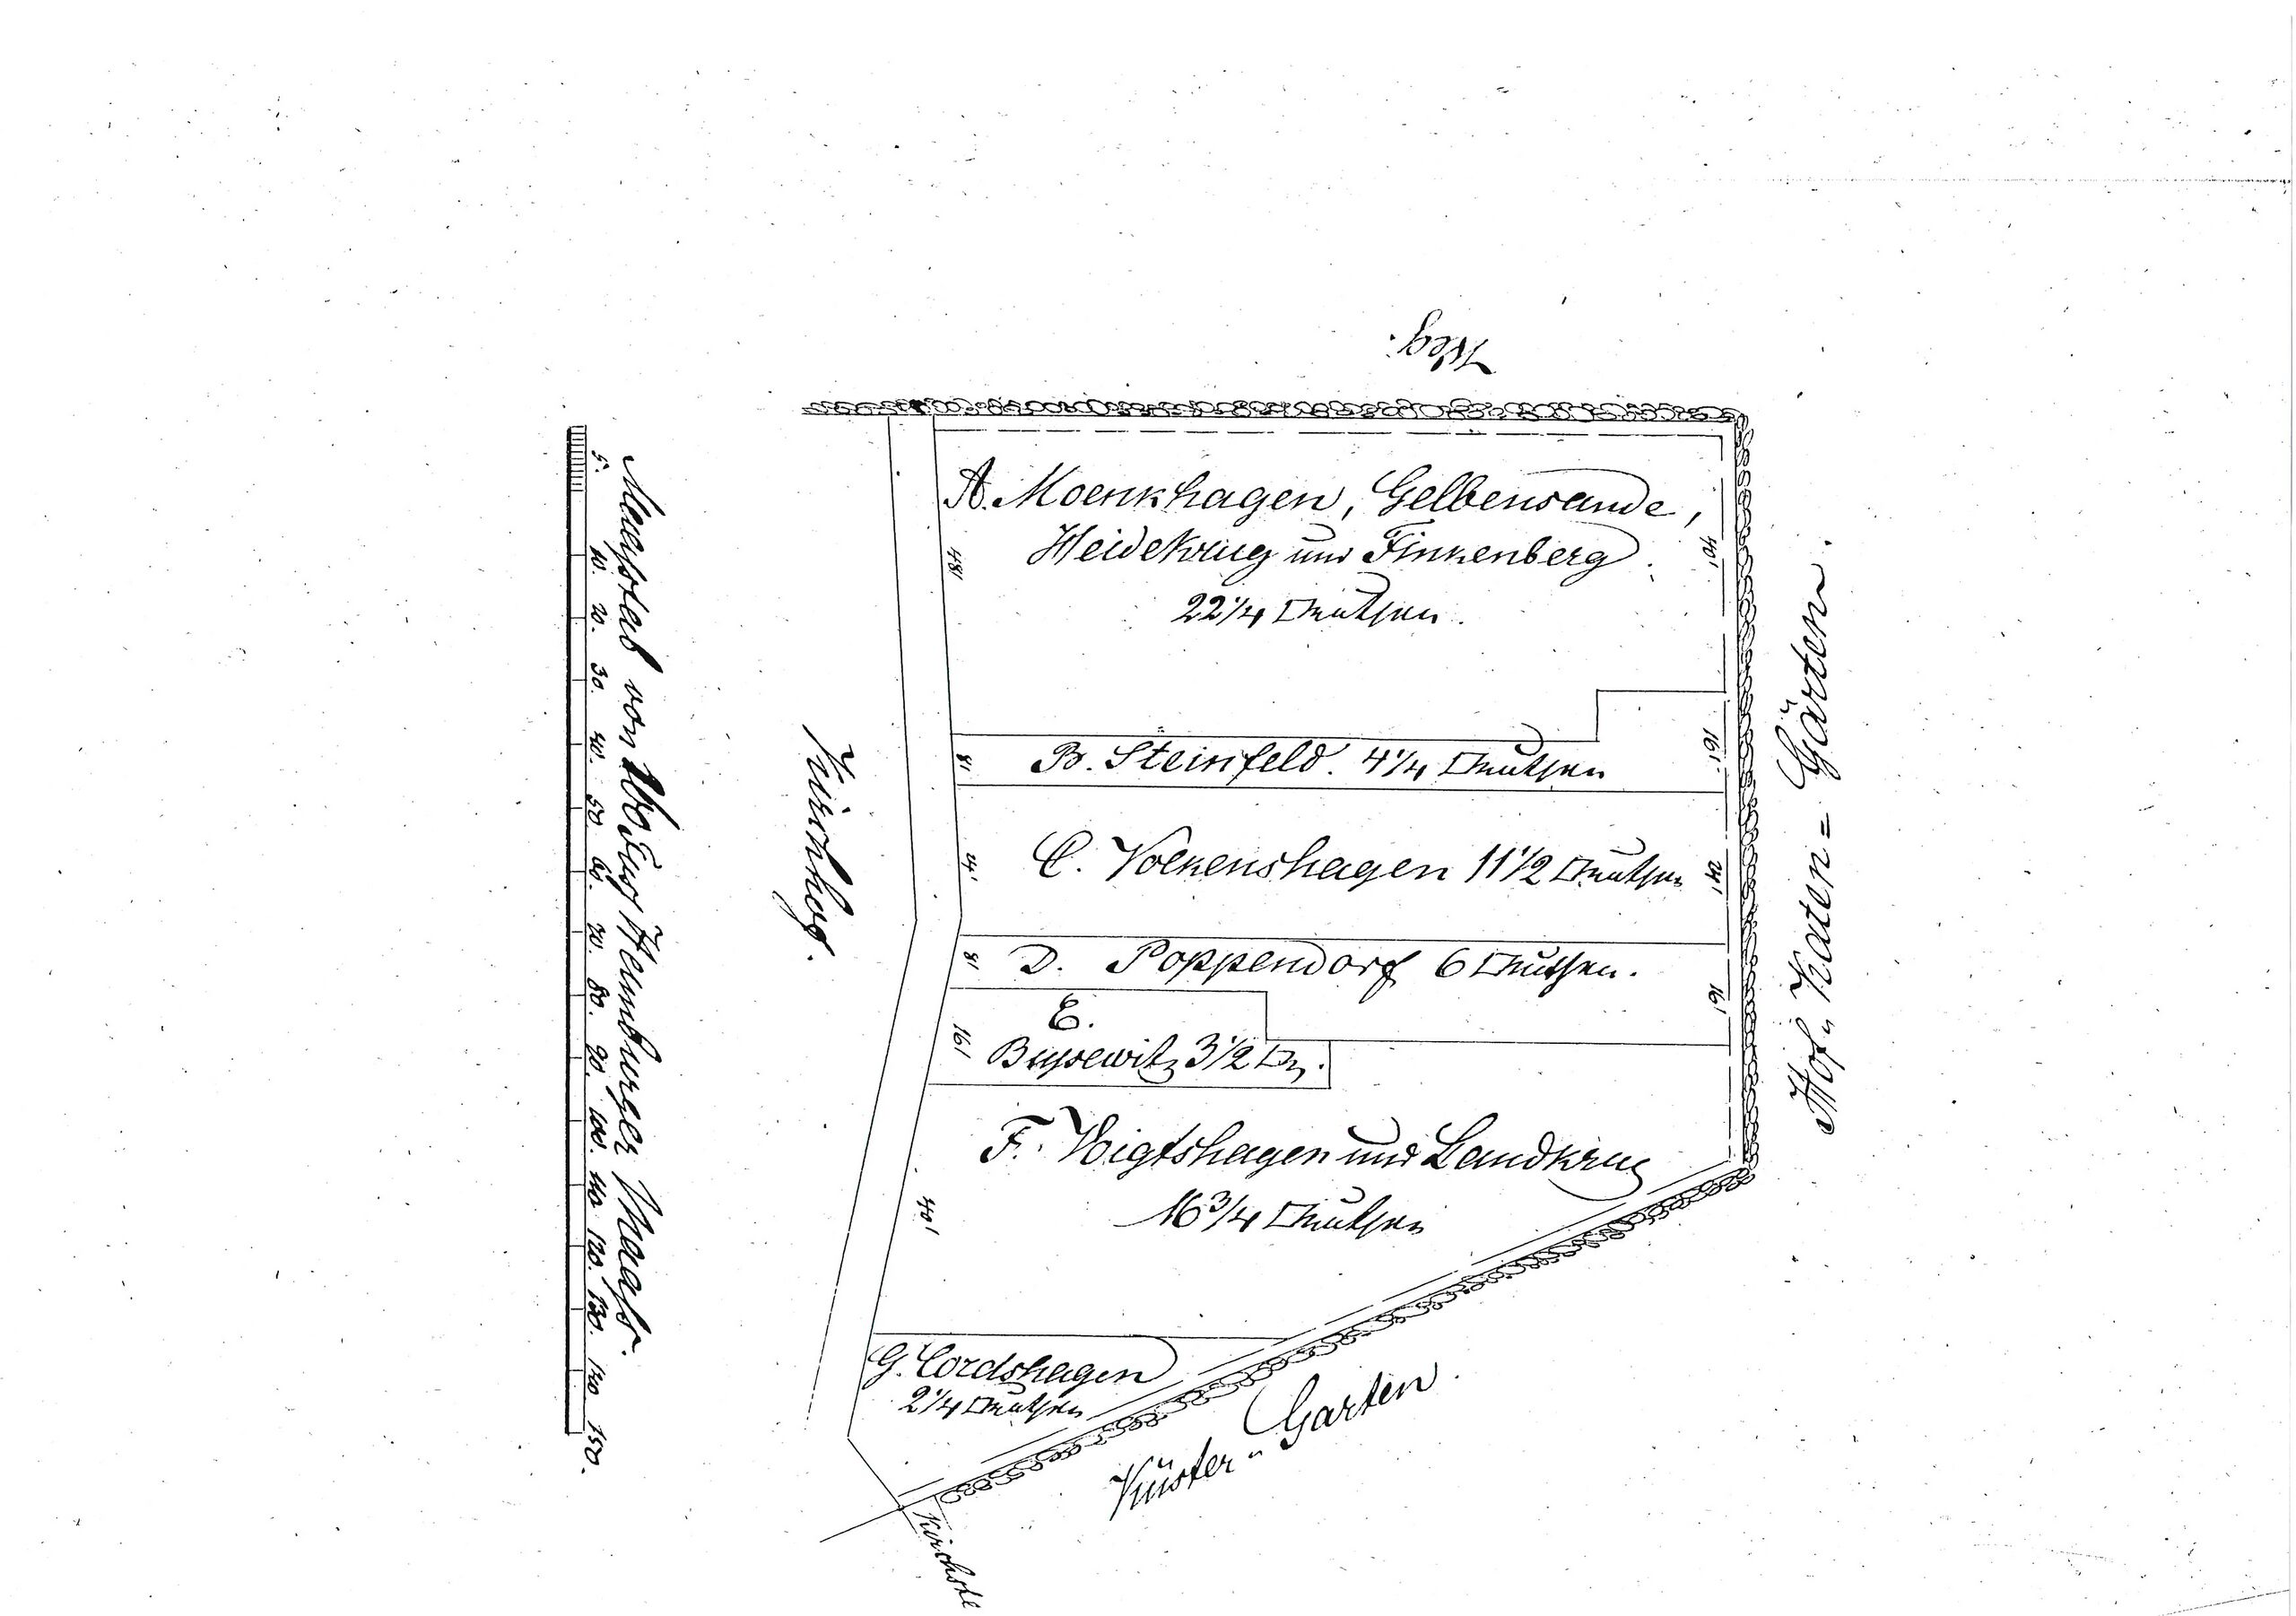 Weg.
A. Moenkhagen, Gelbensande,
Heidekrug und Finkenberg.
48'
40'
22 1/4 □Ruthen.
B. Steinfeld. 4 1/4 □Ruthen
8'
16'
C. Volkenshagen 11 1/2 □Ruthen
24'
24'
D. Poppendorf 6 □Ruthen.
8'
16'
E.
Bussewitz 3 1/2 □R.
16'
F. Voigtshagen und Landkrug
16 3/4 □Ruthen
40'
G. Cordshagen
2 1/4 □Ruthen
Kirchhof.
Hof- Katen = Gärten.
Küster- Garten.
Kirchste
Maaßstab von 160 Fuß Hamburger Maaß.
5. 10. 20. 30. 40. 50. 60. 70. 80. 90. 100. 110 120. 130. 140 150.